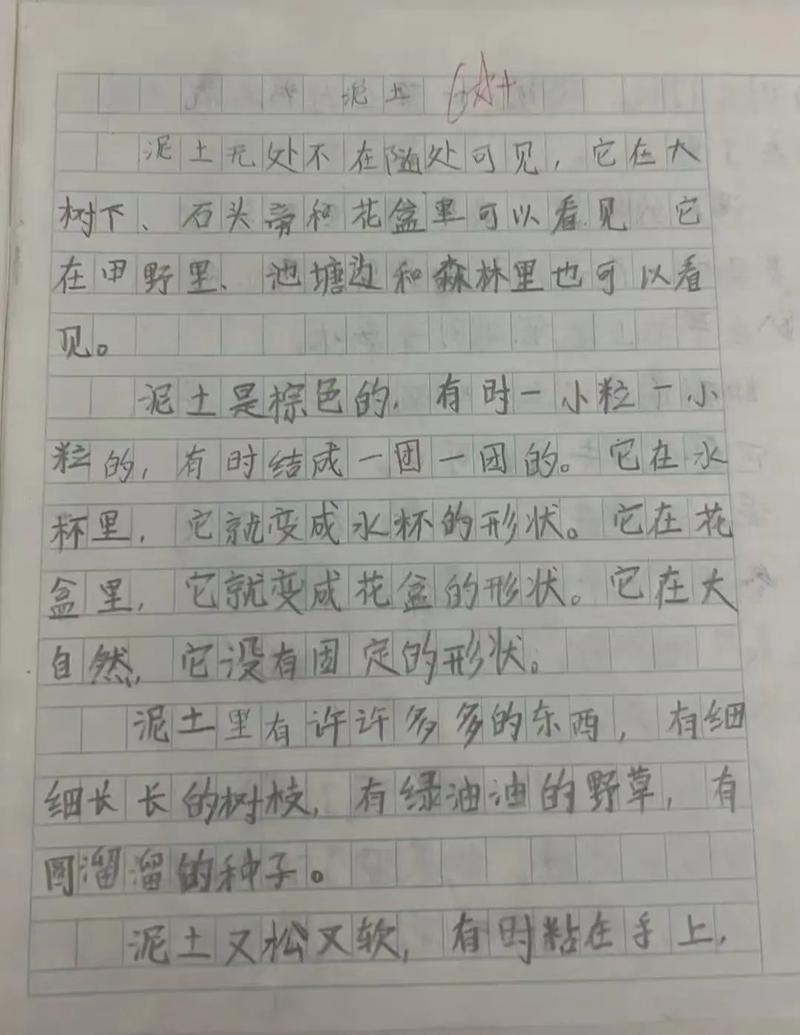 泥土
泥土无处不在随处可见，它在大
树下、石头旁和花盆里可以看见 它
在田野里、池塘边和森林里也可以看
见。
泥土是棕色的，有时一小粒一小
粒的，有时结成一团一团的。它在水
杯里，它就变成水杯的形状。它在花
盆里，它就变成花盆的形状。它在大
自然，它没有固定的形状。
泥土里有许许多多的东西，有细
细长长的树枝，有绿油油的野草，有
圆溜溜的种子。
泥土又松又软，有时粘在手上，